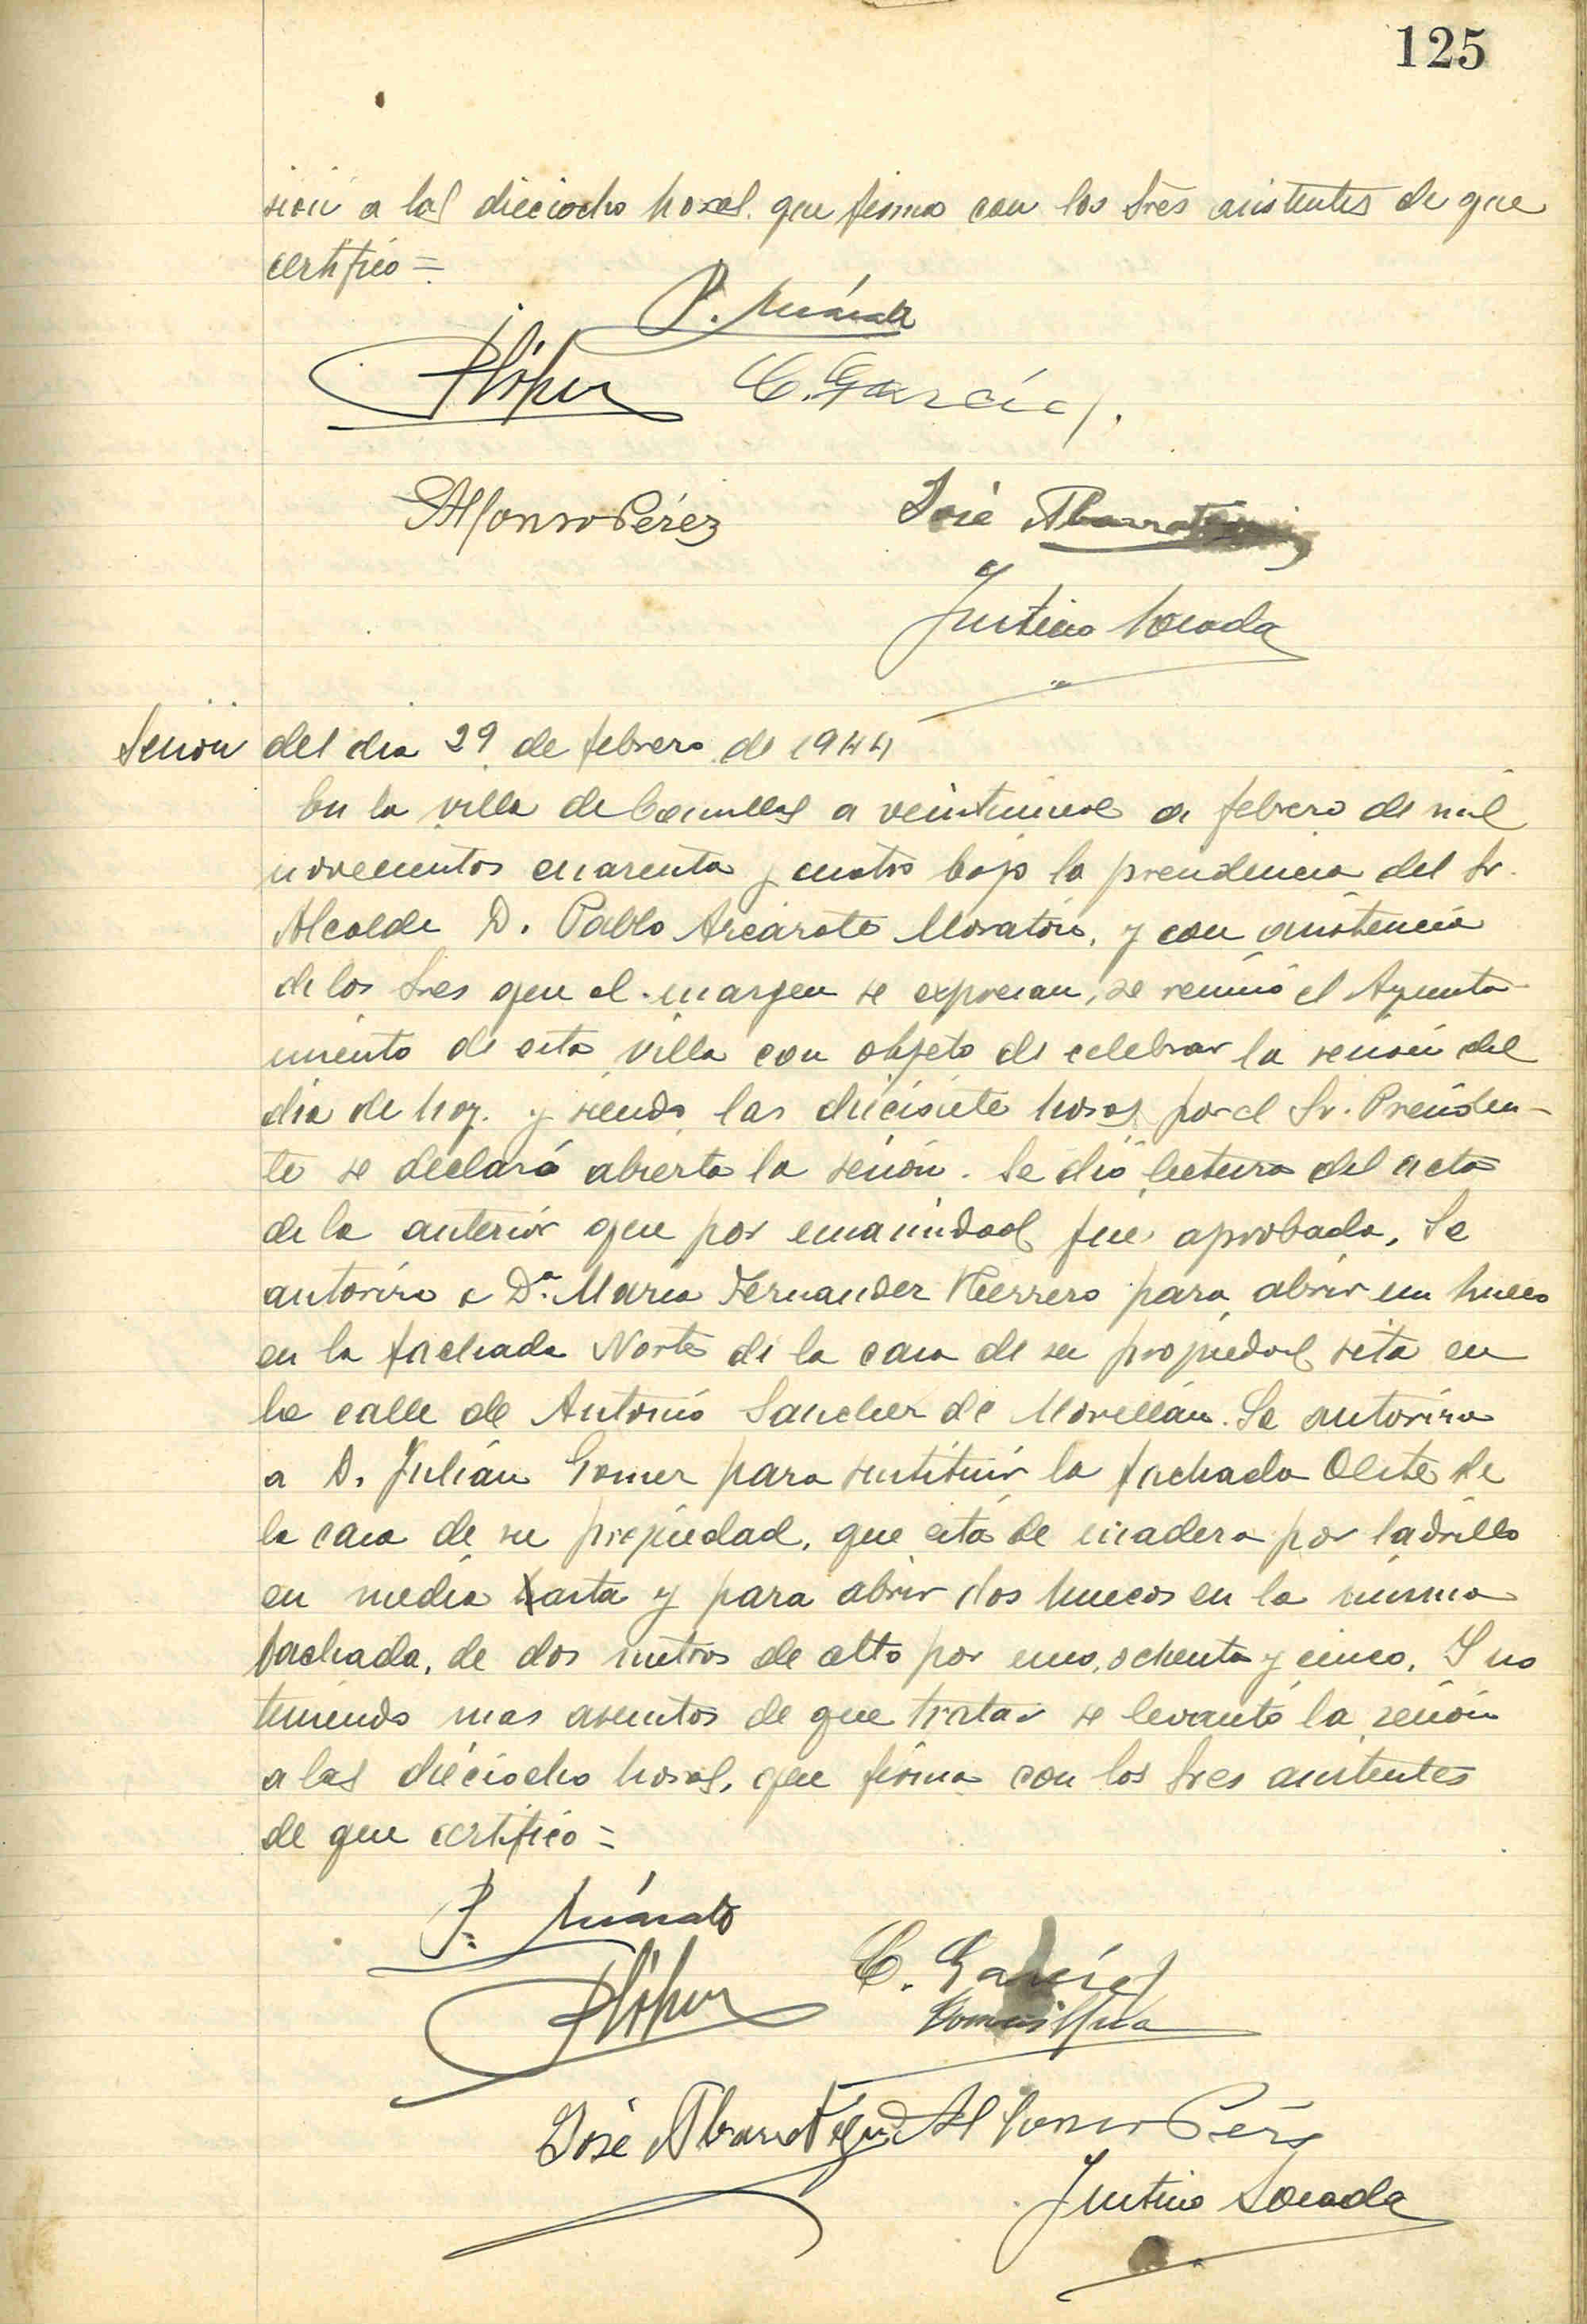 125
sión a las dieciocho horas. que firma con los Sres asistentes de que
certifico =
P.
C. García
Alfonso Pérez José
Justino Losada
Sesión del dia 29 de febrero de 1944
En la villa de Canillas a veintinueve de febrero de mil
novecientos cuarenta y cuatro bajo la presidencia del Sr.
Alcalde D. Pablo Moratón, y con asistencia
de los Sres que al margen se expresan, se reunió el Ayunta-
miento de esta villa con objeto de celebrar la sesión del
dia de hoy. y siendo las diecisiete horas por el Sr. Presiden-
te se declaró abierta la sesión. Se dió lectura del acta
de la anterior que por unanimidad fué aprobada. Se
autoriza a Dª. Maria Fernandez Herrero para abrir un hueco
en la fachada Norte de la casa de su propiedad sita en
la calle de Antonio Sanchez de Movellán. Se autoriza
a D. Julián Gomez para sustituir la fachada Oeste de
la casa de su propiedad, que está de madera por ladrillo
en media asta y para abrir dos huecos en la misma
fachada, de dos metros de alto por uno, ochenta y cinco. Y no
teniendo mas asuntos de que tratar se levantó la sesión
a las dieciocho horas, que firma con los Sres asistentes
de que certifico =
P.
C. García
José Alfonso Pérez
Justino Losada